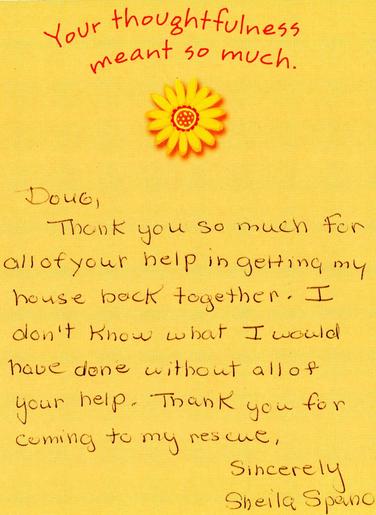 Your thoughtfulness
meant so much.
Doug,
Thank you so much for
all of your help in getting my
house back together. I
don't know what I would
have done without all of
your help. Thank you for
coming to my rescue,
Sincerely
Sheila Spano